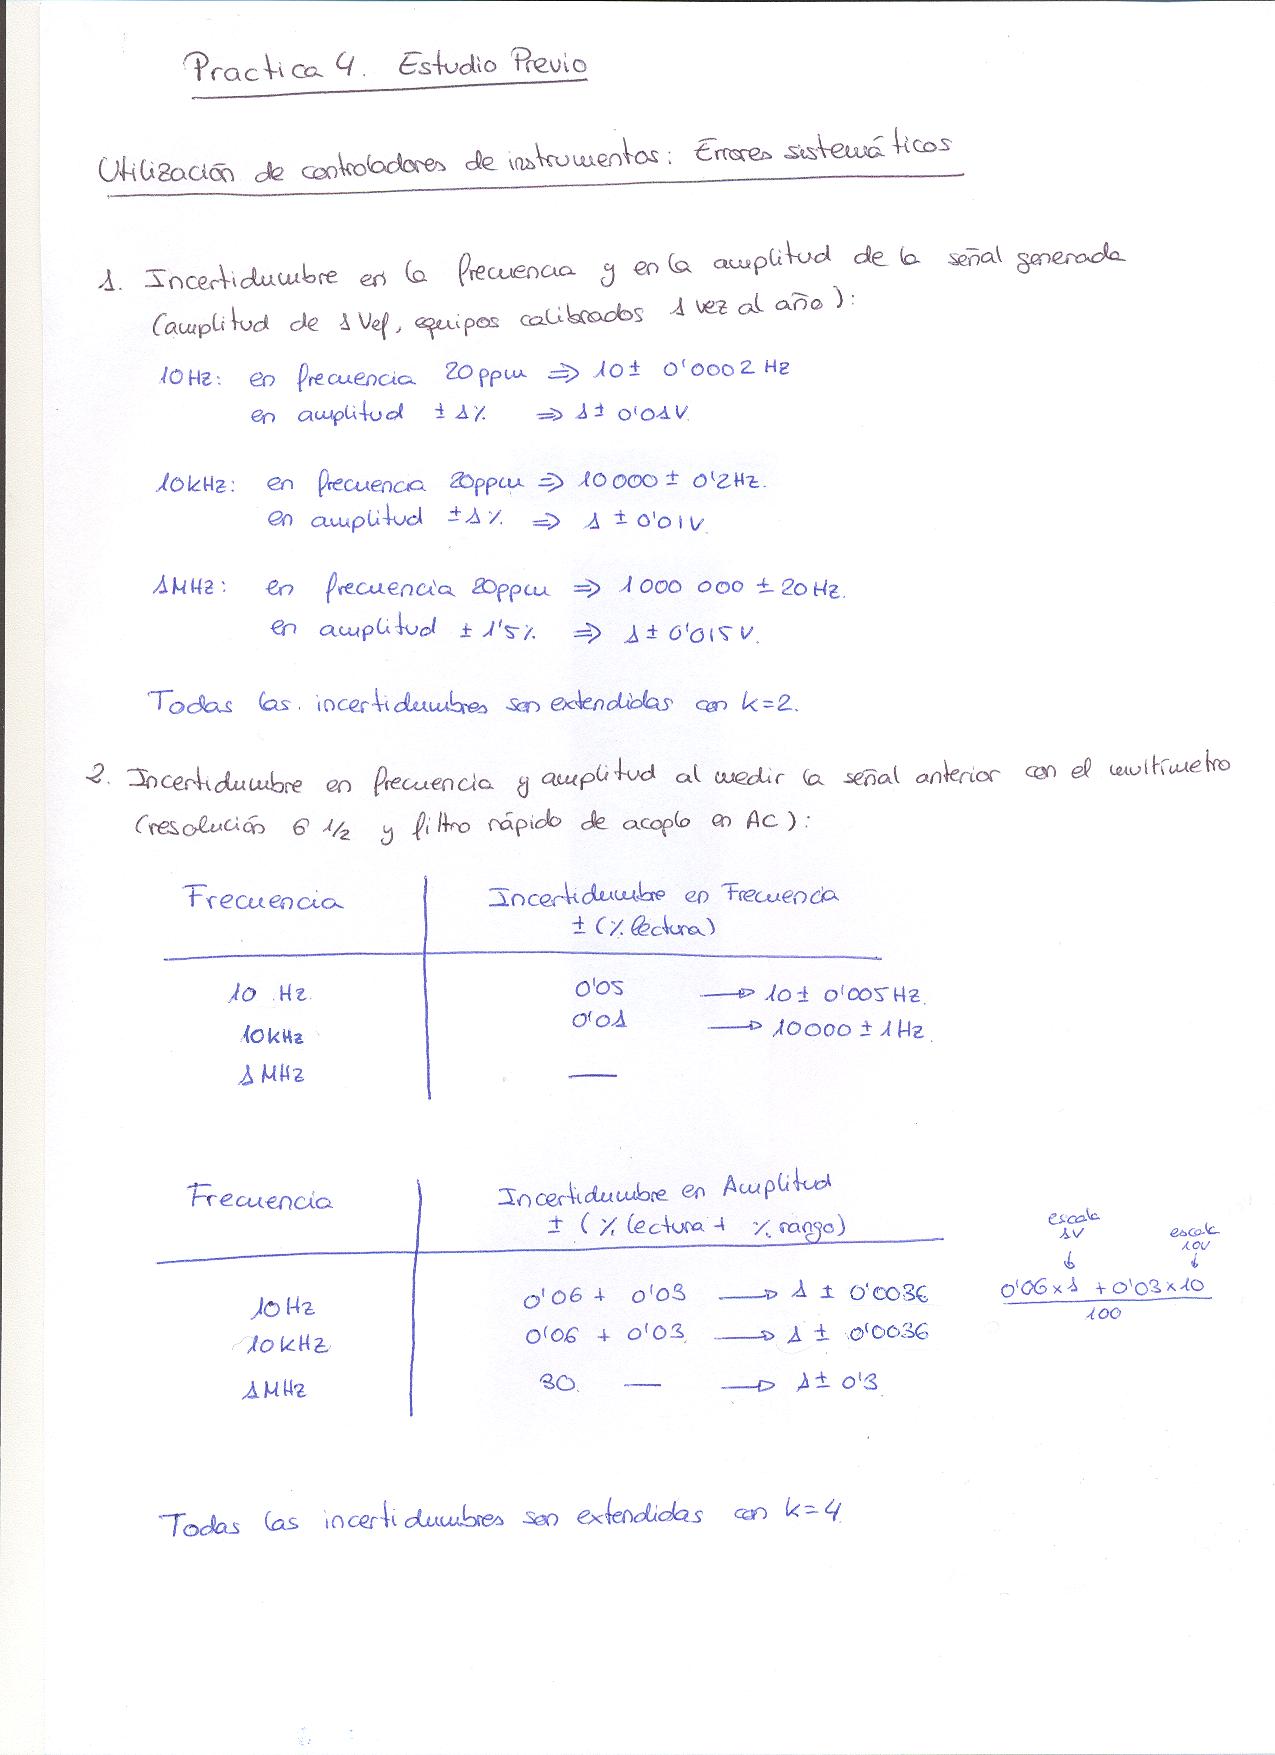 Practica 4. Estudio Previo
Utilización de controladores de instrumentos: Errores sistemáticos
1. Incertidumbre en la frecuencia y en la amplitud de la señal generada
(amplitud de 1 Vef, equipos calibrados 1 vez al año):
10Hz: en frecuencia 20ppm ⇒ 10 ± 0'0002 Hz
en amplitud ± 1% ⇒ 1 ± 0'01V.
10kHz: en frecuencia 20ppm ⇒ 10 000 ± 0'2Hz.
en amplitud ± 1% ⇒ 1 ± 0'01V.
1MHz: en frecuencia 20ppm ⇒ 1 000 000 ± 20Hz.
en amplitud ± 1'5% ⇒ 1 ± 0'015V.
Todas las incertidumbres son extendidas con k=2.
2. Incertidumbre en frecuencia y amplitud al medir la señal anterior con el multímetro
(resolución 6 1/2 y filtro rápido de acoplo en AC):
Frecuencia Incertidumbre en Frecuencia
± (% lectura)
10 Hz. 0'05 → 10 ± 0'005Hz.
10kHz 0'01 → 10000 ± 1Hz.
1MHz —
Frecuencia Incertidumbre en Amplitud
± (% lectura + % rango)
escala 1V ↓ escala 10V ↓
10Hz 0'06 + 0'03 → 1 ± 0'0036 0'06 x 1 + 0'03 x 10
100
10kHz 0'06 + 0'03 → 1 ± 0'0036
1MHz 30. — → 1 ± 0'3.
Todas las incertidumbres son extendidas con k=4.